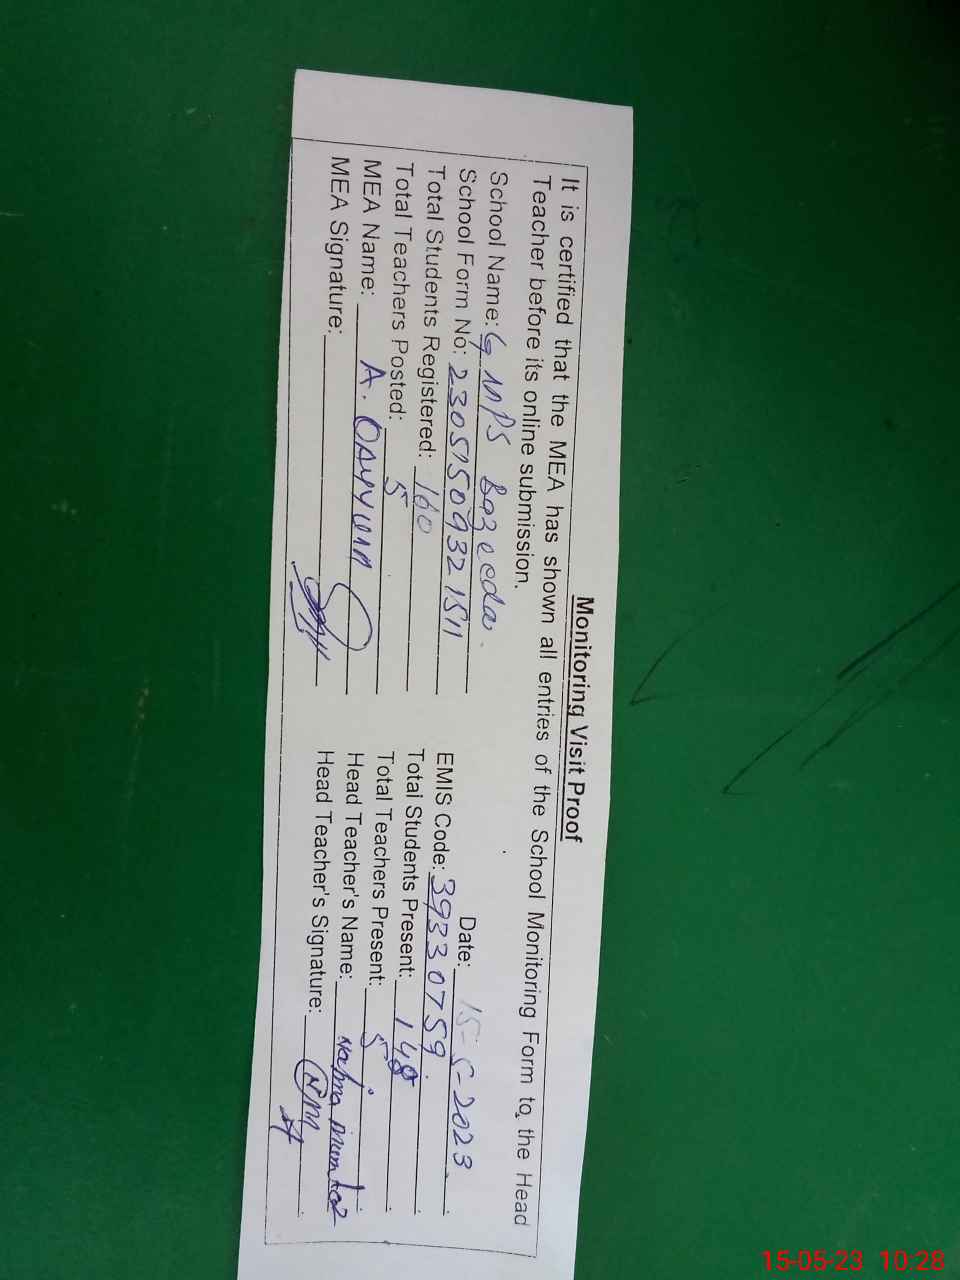 Monitoring Visit Proof
It is certified that the MEA has shown all entries of the School Monitoring Form to the Head
Teacher before its online submission.
Date: 15-5-2023
School Name: G MPS Bazeeda.
School Form No: 23051509321511
EMIS Code: 39330759.
Total Students Registered: 160
Total Students Present: 148
Total Teachers Posted: 5
Total Teachers Present: 5
MEA Name: A. QAYYUM
Head Teacher's Name: Najma Mumtaz
MEA Signature:
Head Teacher's Signature:
15-05-23 10:28